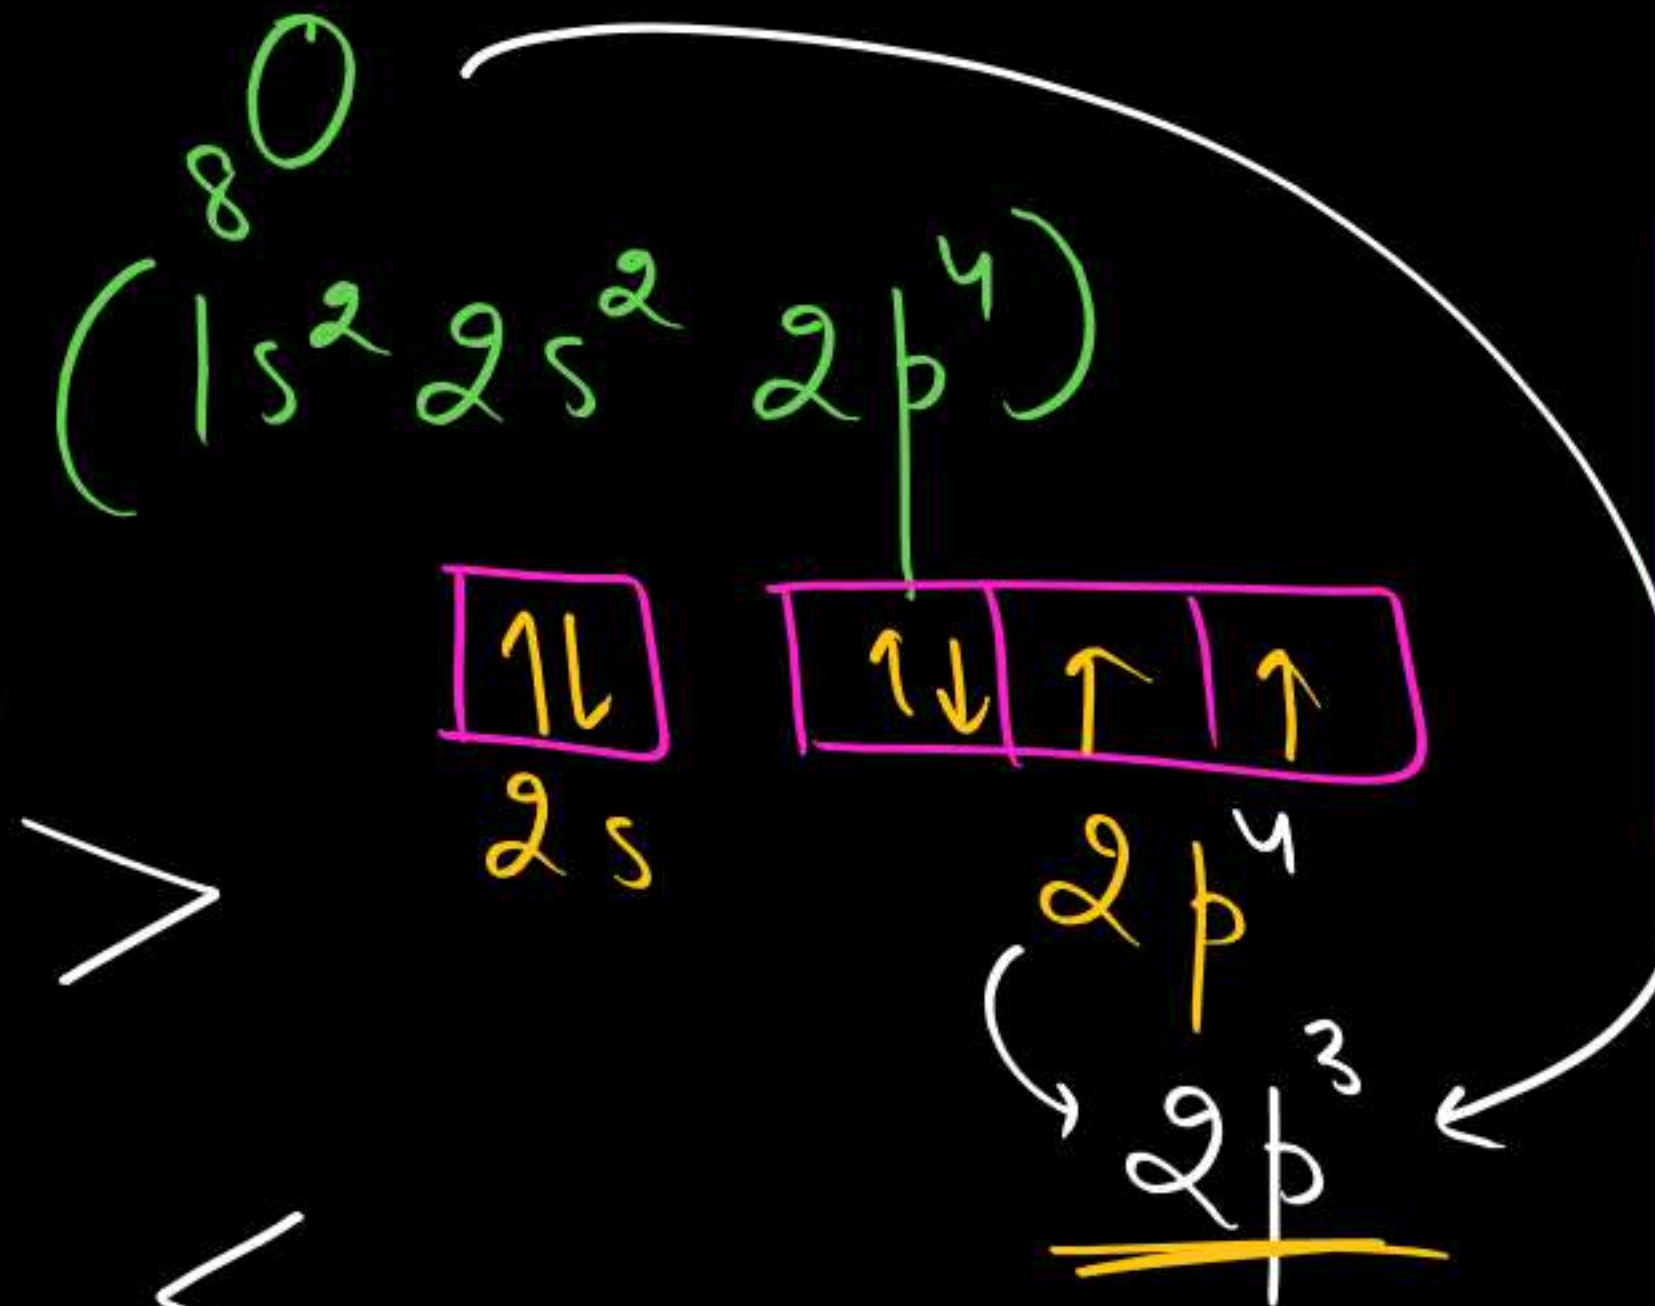 ₈O
(1s² 2s² 2p⁴)
↑↓ ↑↓ ↑ ↑
2s 2p⁴
> 2p³
<